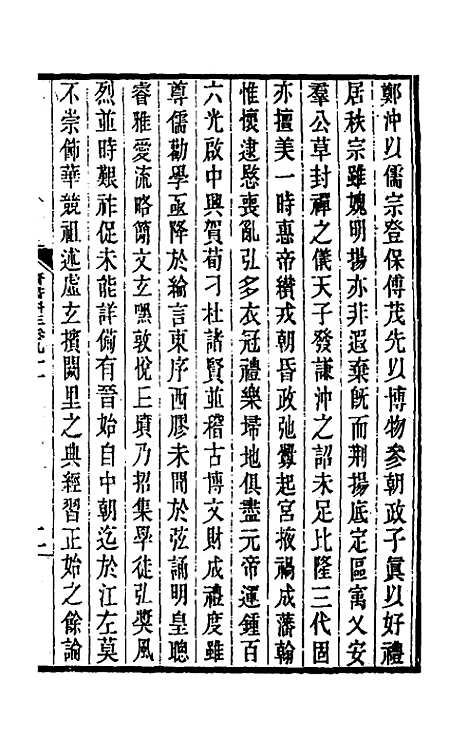 鄭沖以儒宗登保傅茂先以博物參朝政子眞以好禮
居秩宗雖媿明揚亦非遐棄旣而荆揚底定區寓乂安
羣公草封禪之儀天子發謙沖之詔未足比隆三代固
亦擅美一時惠帝纘戎朝昏政弛釁起宮掖禍成藩翰
惟懷逮愍喪亂弘多衣冠禮樂掃地俱盡元帝運鍾百
六光啟中興賀荀刁杜諸賢並稽古博文財成禮度雖
尊儒勸學亟降於綸言東序西膠未聞於弦誦明皇聰
睿雅愛流略簡文玄嘿敦悅丘墳乃招集學徒弘奬風
烈並時艱祚促未能詳備有晉始自中朝迄於江左莫
不崇飾華競祖述虛玄擯闕里之典經習正始之餘論